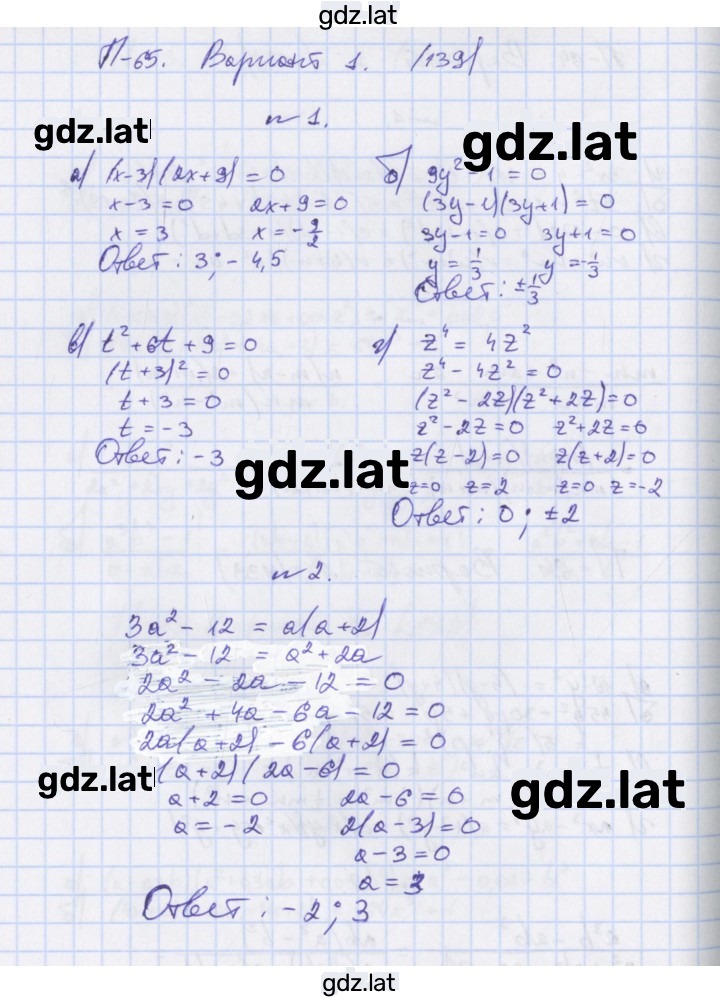 gdz.lat
П-65. Вариант 1. (139)
gdz.lat
n 1.
gdz.lat
а) (x-3)(2x+9)=0
x-3=0 2x+9=0
x=3 x=-9/2
Ответ: 3; -4,5
б) 9y²-1=0
(3y-1)(3y+1)=0
3y-1=0 3y+1=0
y=1/3 y=-1/3
Ответ: ±1/3
в) t²+6t+9=0
(t+3)²=0
t+3=0
t=-3
Ответ: -3
г) z⁴=4z²
z⁴-4z²=0
(z²-2z)(z²+2z)=0
z²-2z=0 z²+2z=0
z(z-2)=0 z(z+2)=0
z=0 z=2 z=0 z=-2
Ответ: 0; ±2
gdz.lat
n 2.
3a²-12=a(a+2)
3a²-12=a²+2a
2a²-2a-12=0
2a²+4a-6a-12=0
2a(a+2)-6(a+2)=0
(a+2)(2a-6)=0
a+2=0 2a-6=0
a=-2 2(a-3)=0
a-3=0
a=3
Ответ: -2; 3
gdz.lat
gdz.lat
gdz.lat